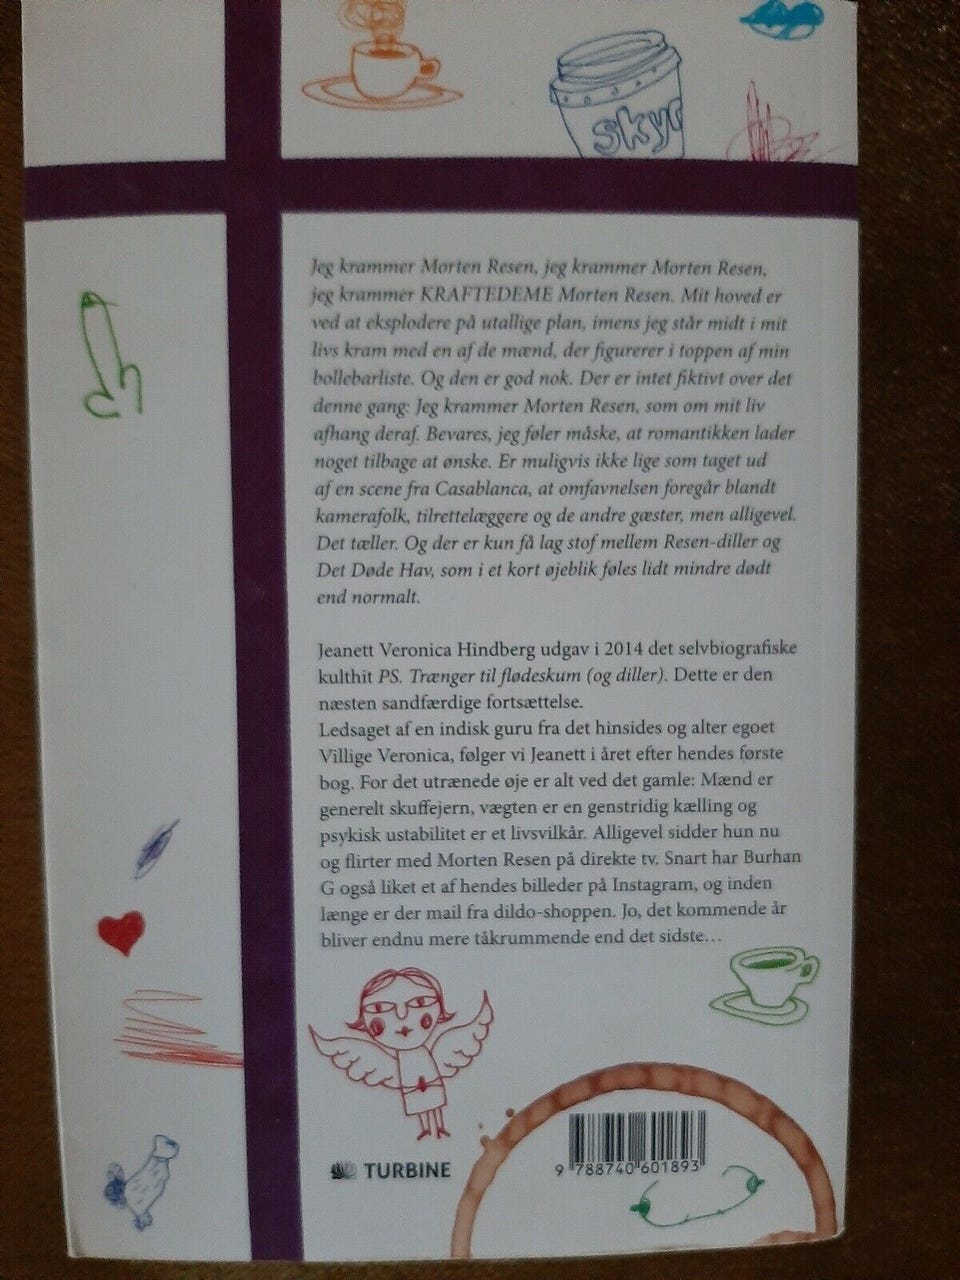 skyr
Jeg krammer Morten Resen, jeg krammer Morten Resen,
jeg krammer KRAFTEDEME Morten Resen. Mit hoved er
ved at eksplodere på utallige plan, imens jeg står midt i mit
livs kram med en af de mænd, der figurerer i toppen af min
bollebarliste. Og den er god nok. Der er intet fiktivt over det
denne gang: Jeg krammer Morten Resen, som om mit liv
afhang deraf. Bevares, jeg føler måske, at romantikken lader
noget tilbage at ønske. Er muligvis ikke lige som taget ud
af en scene fra Casablanca, at omfavnelsen foregår blandt
kamerafolk, tilrettelæggere og de andre gæster, men alligevel.
Det tæller. Og der er kun få lag stof mellem Resen-diller og
Det Døde Hav, som i et kort øjeblik føles lidt mindre dødt
end normalt.
Jeanett Veronica Hindberg udgav i 2014 det selvbiografiske
kulthit PS. Trænger til flødeskum (og diller). Dette er den
næsten sandfærdige fortsættelse.
Ledsaget af en indisk guru fra det hinsides og alter egoet
Villige Veronica, følger vi Jeanett i året efter hendes første
bog. For det utrænede øje er alt ved det gamle: Mænd er
generelt skuffejern, vægten er en genstridig kælling og
psykisk ustabilitet er et livsvilkår. Alligevel sidder hun nu
og flirter med Morten Resen på direkte tv. Snart har Burhan
G også liket et af hendes billeder på Instagram, og inden
længe er der mail fra dildo-shoppen. Jo, det kommende år
bliver endnu mere tåkrummende end det sidste…
TURBINE
9 788740 601893